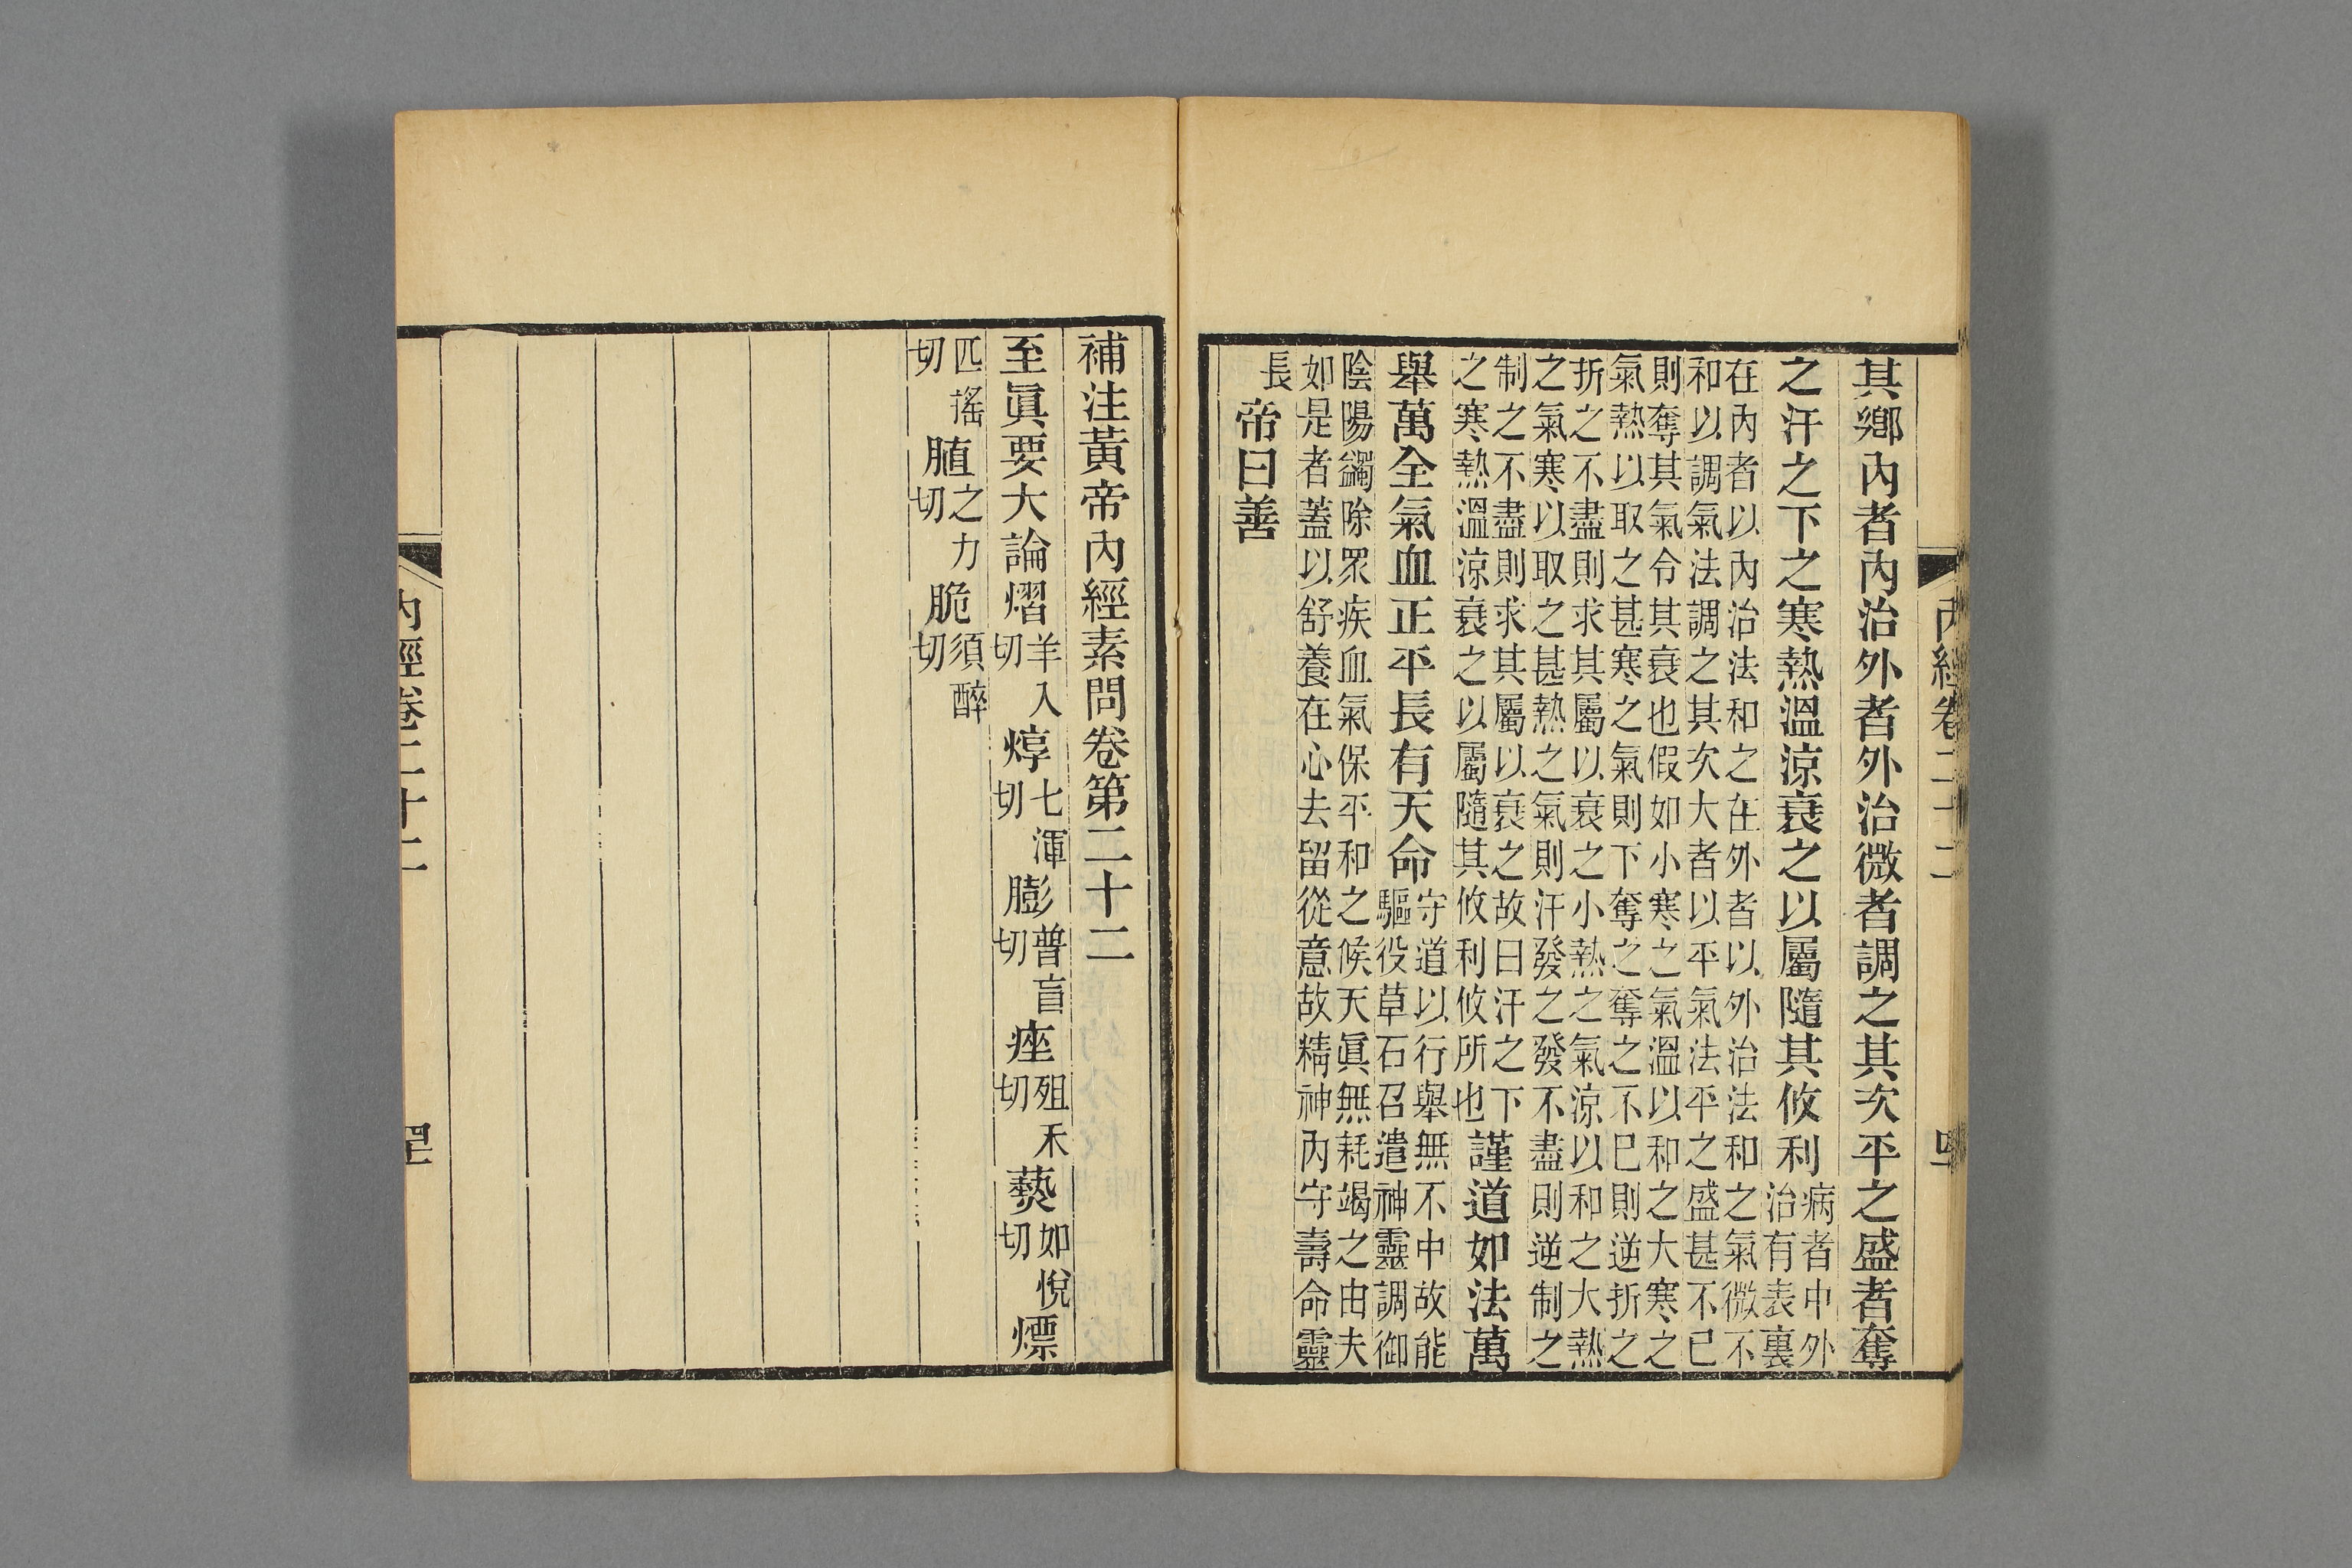 其鄉內者內治外者外治微者調之其次平之盛者奪
之汗之下之寒熱溫涼衰之以屬隨其攸利
病者中外
治有表裏
在內者以內治法和之在外者以外治法和之氣微不
和以調氣法調之其次大者以平氣法平之盛甚不已
則奪其氣令其衰也假如小寒之氣溫以和之大寒之
氣熱以取之甚寒之氣則下奪之奪之不已則逆折之
折之不盡則求其屬以衰之小熱之氣涼以和之大熱
之氣寒以取之甚熱之氣則汗發之發之發不盡則逆制之
制之不盡則求其屬以衰之故曰汗之下
之寒熱溫涼衰之以屬隨其攸利攸所也
謹道如法萬
舉萬全氣血正平長有天命
守道以行舉無不中故能
驅役草石召遣神靈調御
陰陽蠲除眾疾血氣保平和之候天眞無耗竭之由夫
如是者蓋以舒養在心去留從意故精神內守壽命靈
長
帝曰善
內經卷二十二
補注黃帝內經素問卷第二十二
至眞要大論熠羊入切焞七渾切膨普盲切痤殂禾切爇如悅切熛
匹搖切之力切脆須醉切
內經卷二十二